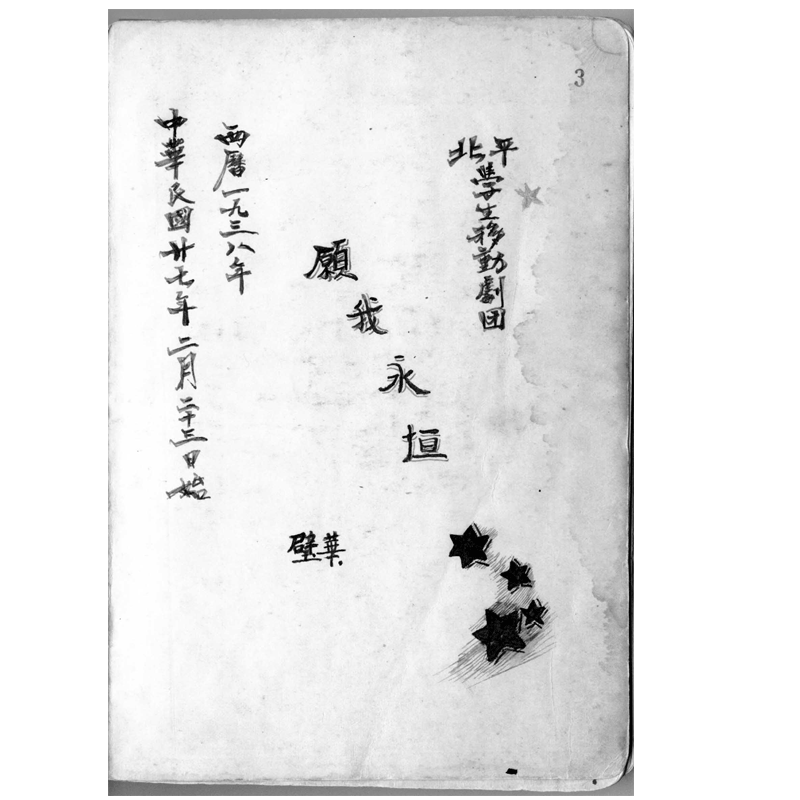 3
北平
學生移動劇团
願我永垣
璧華.
西曆一九三八年
中華民國廿七年二月二十三日始